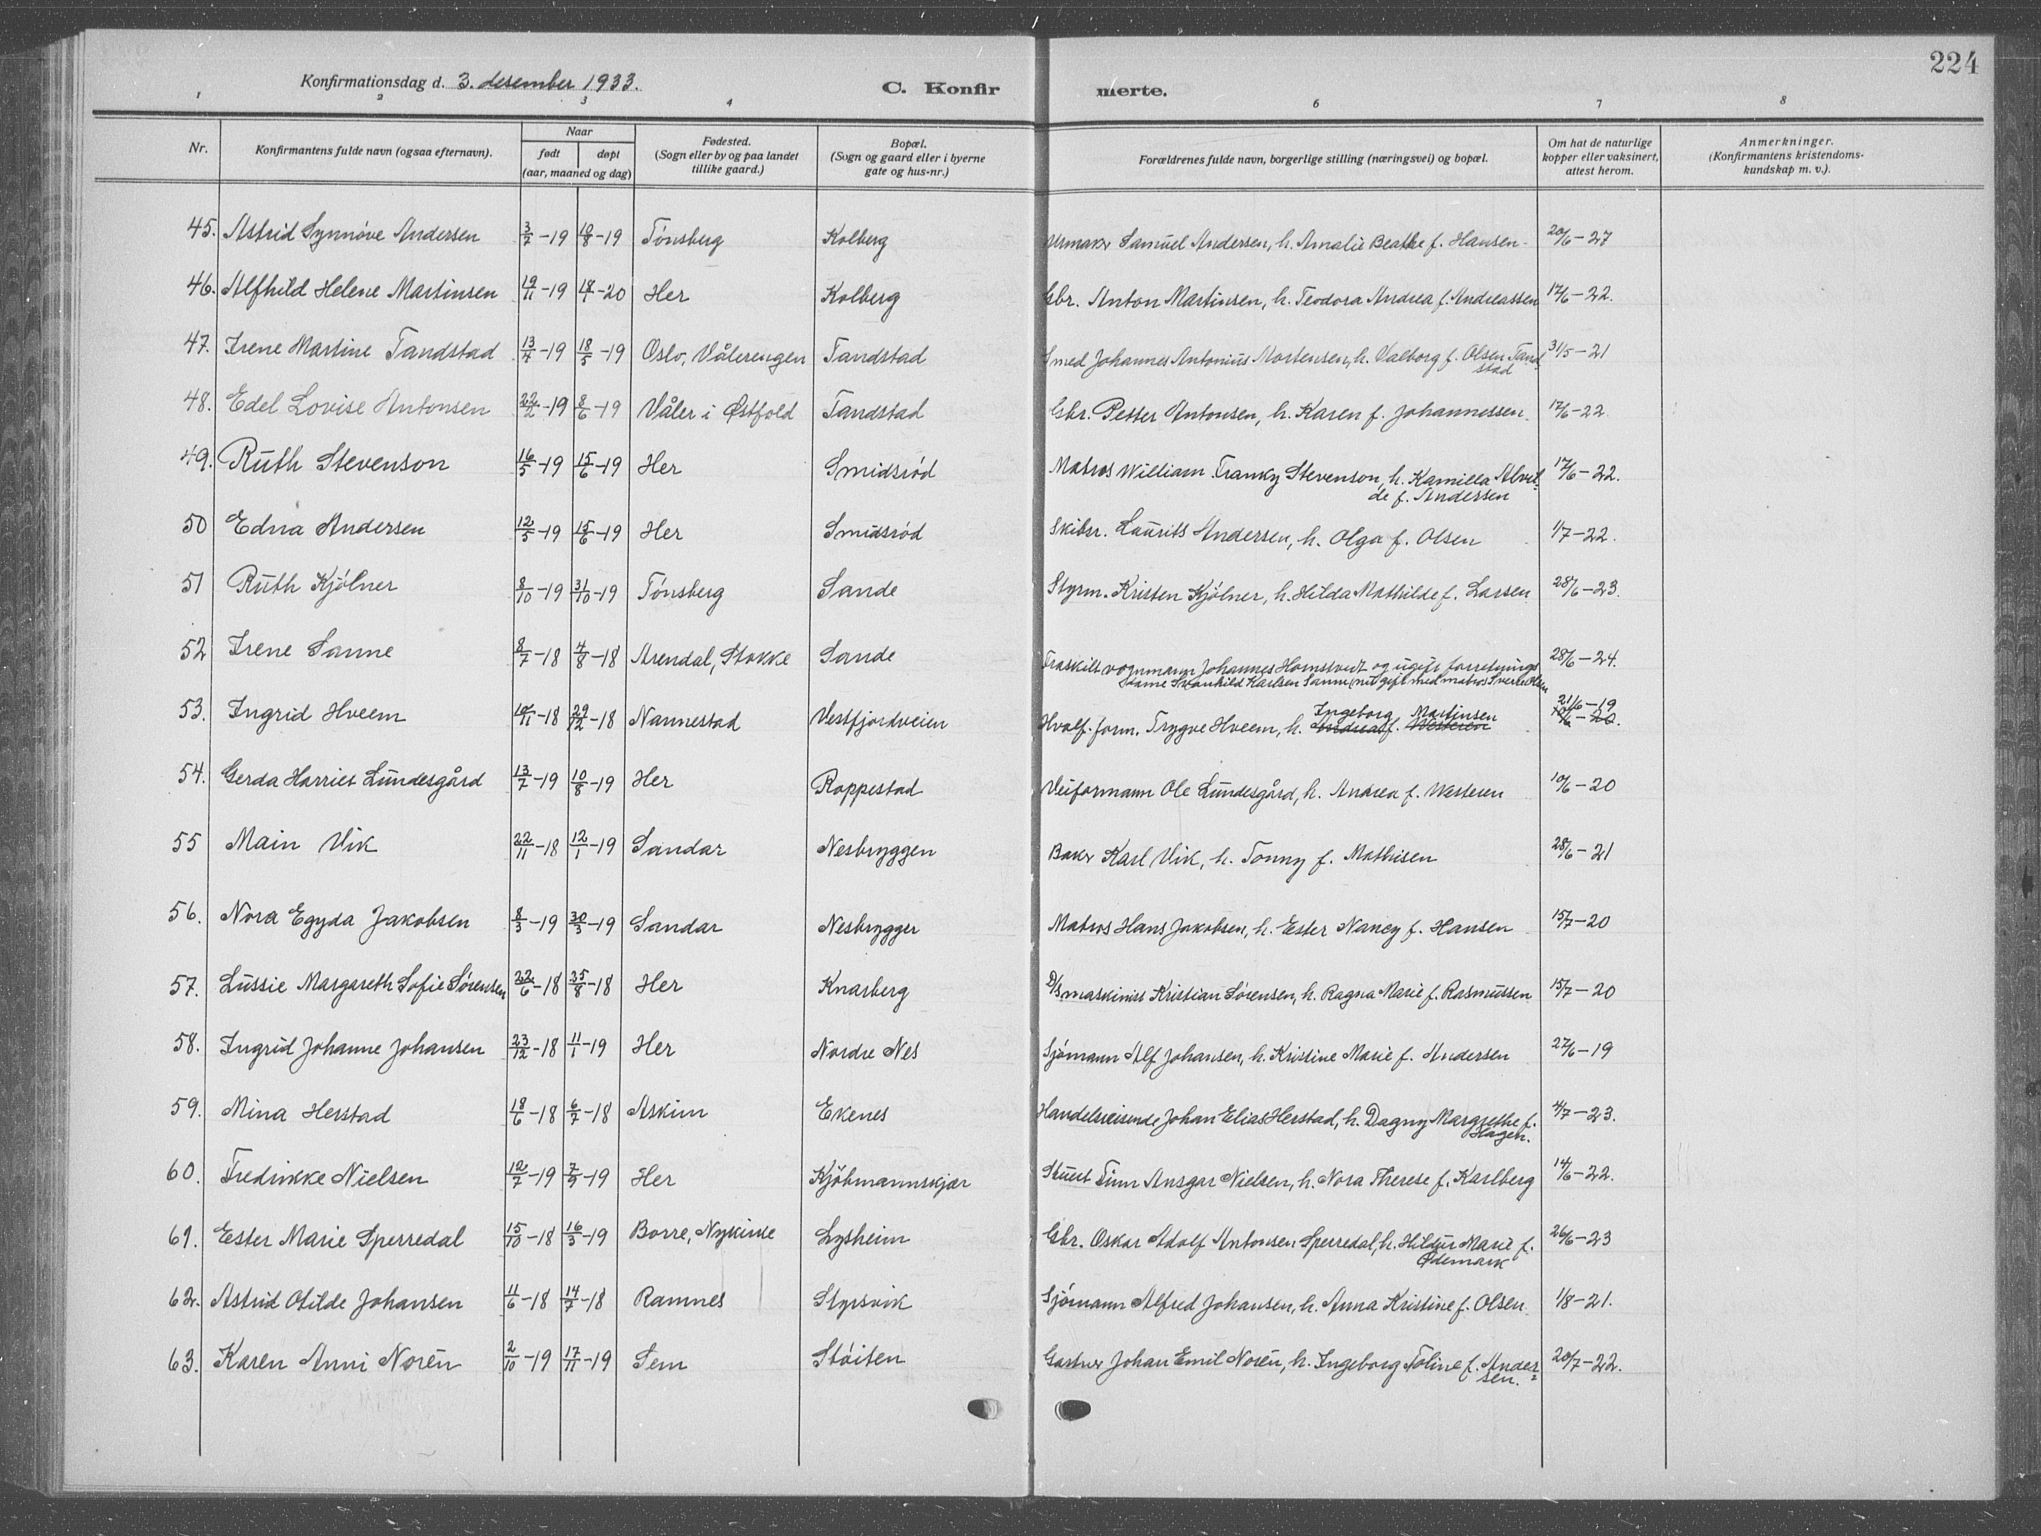 224
Konfirmationsdag d. 3. desember 1933. C. Konfirmerte.
1 2 3 4 6 7 8
Nr. Konfirmantens fulde navn (ogsaa efternavn). Naar født døpt (aar, maaned og dag) Fødested. (Sogn eller by og paa landet tillike gaard.) Bopæl. (Sogn og gaard eller i byerne gate og hus-nr.) Forældrenes fulde navn, borgerlige stilling (næringsvei) og bopæl. Om hat de naturlige kopper eller vaksinert, attest herom. Anmerkninger. (Konfirmantens kristendoms-kundskap m. v.).
45. Astrid Synnøve Andersen 3/7-19 10/8-19 Tønsberg Kolberg Urmaker Samuel Andersen, h. Amalie Beathe f. Hansen 20/6-27
46. Alfhild Helene Martinsen 19/11-19 18/1-20 Her Kolberg Gbr. Anton Martinsen, h. Teodora Andrea f. Andreassen 17/6-22.
47. Irene Martine Tandstad 13/4-19 18/5-19 Oslo, Vålerengen Tandstad Smed Johannes Antonius Mortensen, h. Valborg f. Olsen Tandstad 31/5-21
48. Edel Lovise Antonsen 22/2-19 8/6-19 Våler i Østfold Tandstad Gbr. Petter Antonsen, h. Karen f. Johannessen. 17/6-22
49. Ruth Stevenson 16/5-19 15/6-19 Her Smidsrød Matros William Franky Stevenson, h. Kamilla Alvil-
de f. Andersen 17/6-22.
50 Edna Andersen 12/5-19 15/6-19 Her Smidsrød Skibsr. Laurits Andersen, h. Olga f. Olsen 1/7-22.
51 Ruth Kjølner 8/10-19 31/10-19 Tønsberg Sande Styrm. Kristen Kjølner, h. Hilda Mathilde f. Larsen 28/6-23.
52 Irene Sanne 8/7-18 4/8-18 Arendal, Stokke Sande Fraskilt vognmann Johannes Homstvedt og ugift forretnings
dame Svanhild Karlsen Sanne (nu gift med matros Sverre Olsen 28/6-24.
53. Ingrid Hveem 10/11-18 29/12-18 Nannestad Vestfjordveien Hvalf. form. Trygve Hveem, h. Andrea f. Westeren Ingeborg Martinsen 21/6-19 10/6-20.
54. Gerda Harriet Lundesgård 13/7-19 10/8-19 Her Roppestad Veiformann Ole Lundesgård, h. Andrea f. Westeren 10/6-20
55 Main Vik 22/11-18 12/1-19 Sandar Nesbryggen Baker Karl Vik, h. Tonny f. Mathisen 28/6-21
56. Nora Egyda Jakobsen 8/3-19 30/3-19 Sandar Nesbrygger Matros Hans Jakobsen, h. Ester Nancy f. Hansen 15/7-20
57. Lussie Margareth Sofie Sørensen 22/6-18 25/8-18 Her Knarberg D/S maskinist Kristian Sørensen, h. Ragna Marie f. Rasmussen 15/7-20
58. Ingrid Johanne Johansen 23/12-18 11/1-19 Her Nordre Nes Sjømann Alf Johansen, h. Kristine Marie f. Andersen 27/6-19
59. Mina Herstad 18/6-18 6/7-18 Askim Ekenes Handelsreisende Johan Elias Herstad, h. Dagny Margrethe f.
Hagen. 4/7-23.
60. Fredrikke Nielsen 12/7-19 7/9-19 Her Kjøbmannskjær Stuert Finn Ansgar Nielsen, h. Nora Therese f. Karlberg 14/6-22.
61. Ester Marie Sperredal 15/10-18 16/3-19 Borre, Nykirke Lysheim Gbr. Oskar Adolf Antonsen Sperredal, h. Hildur Marie f.
Ødemark 26/6-23
62. Astrid Otilde Johansen 11/6-18 14/7-18 Ramnes Styrsvik Sjømann Alfred Johansen, h. Anna Kristine f. Olsen 1/8-21.
63. Karen Anni Norén 2/10-19 17/11-19 Sem Støiten Gartner Johan Emil Norén, h. Ingeborg Toline f. Ander-
sen. 20/7-22.